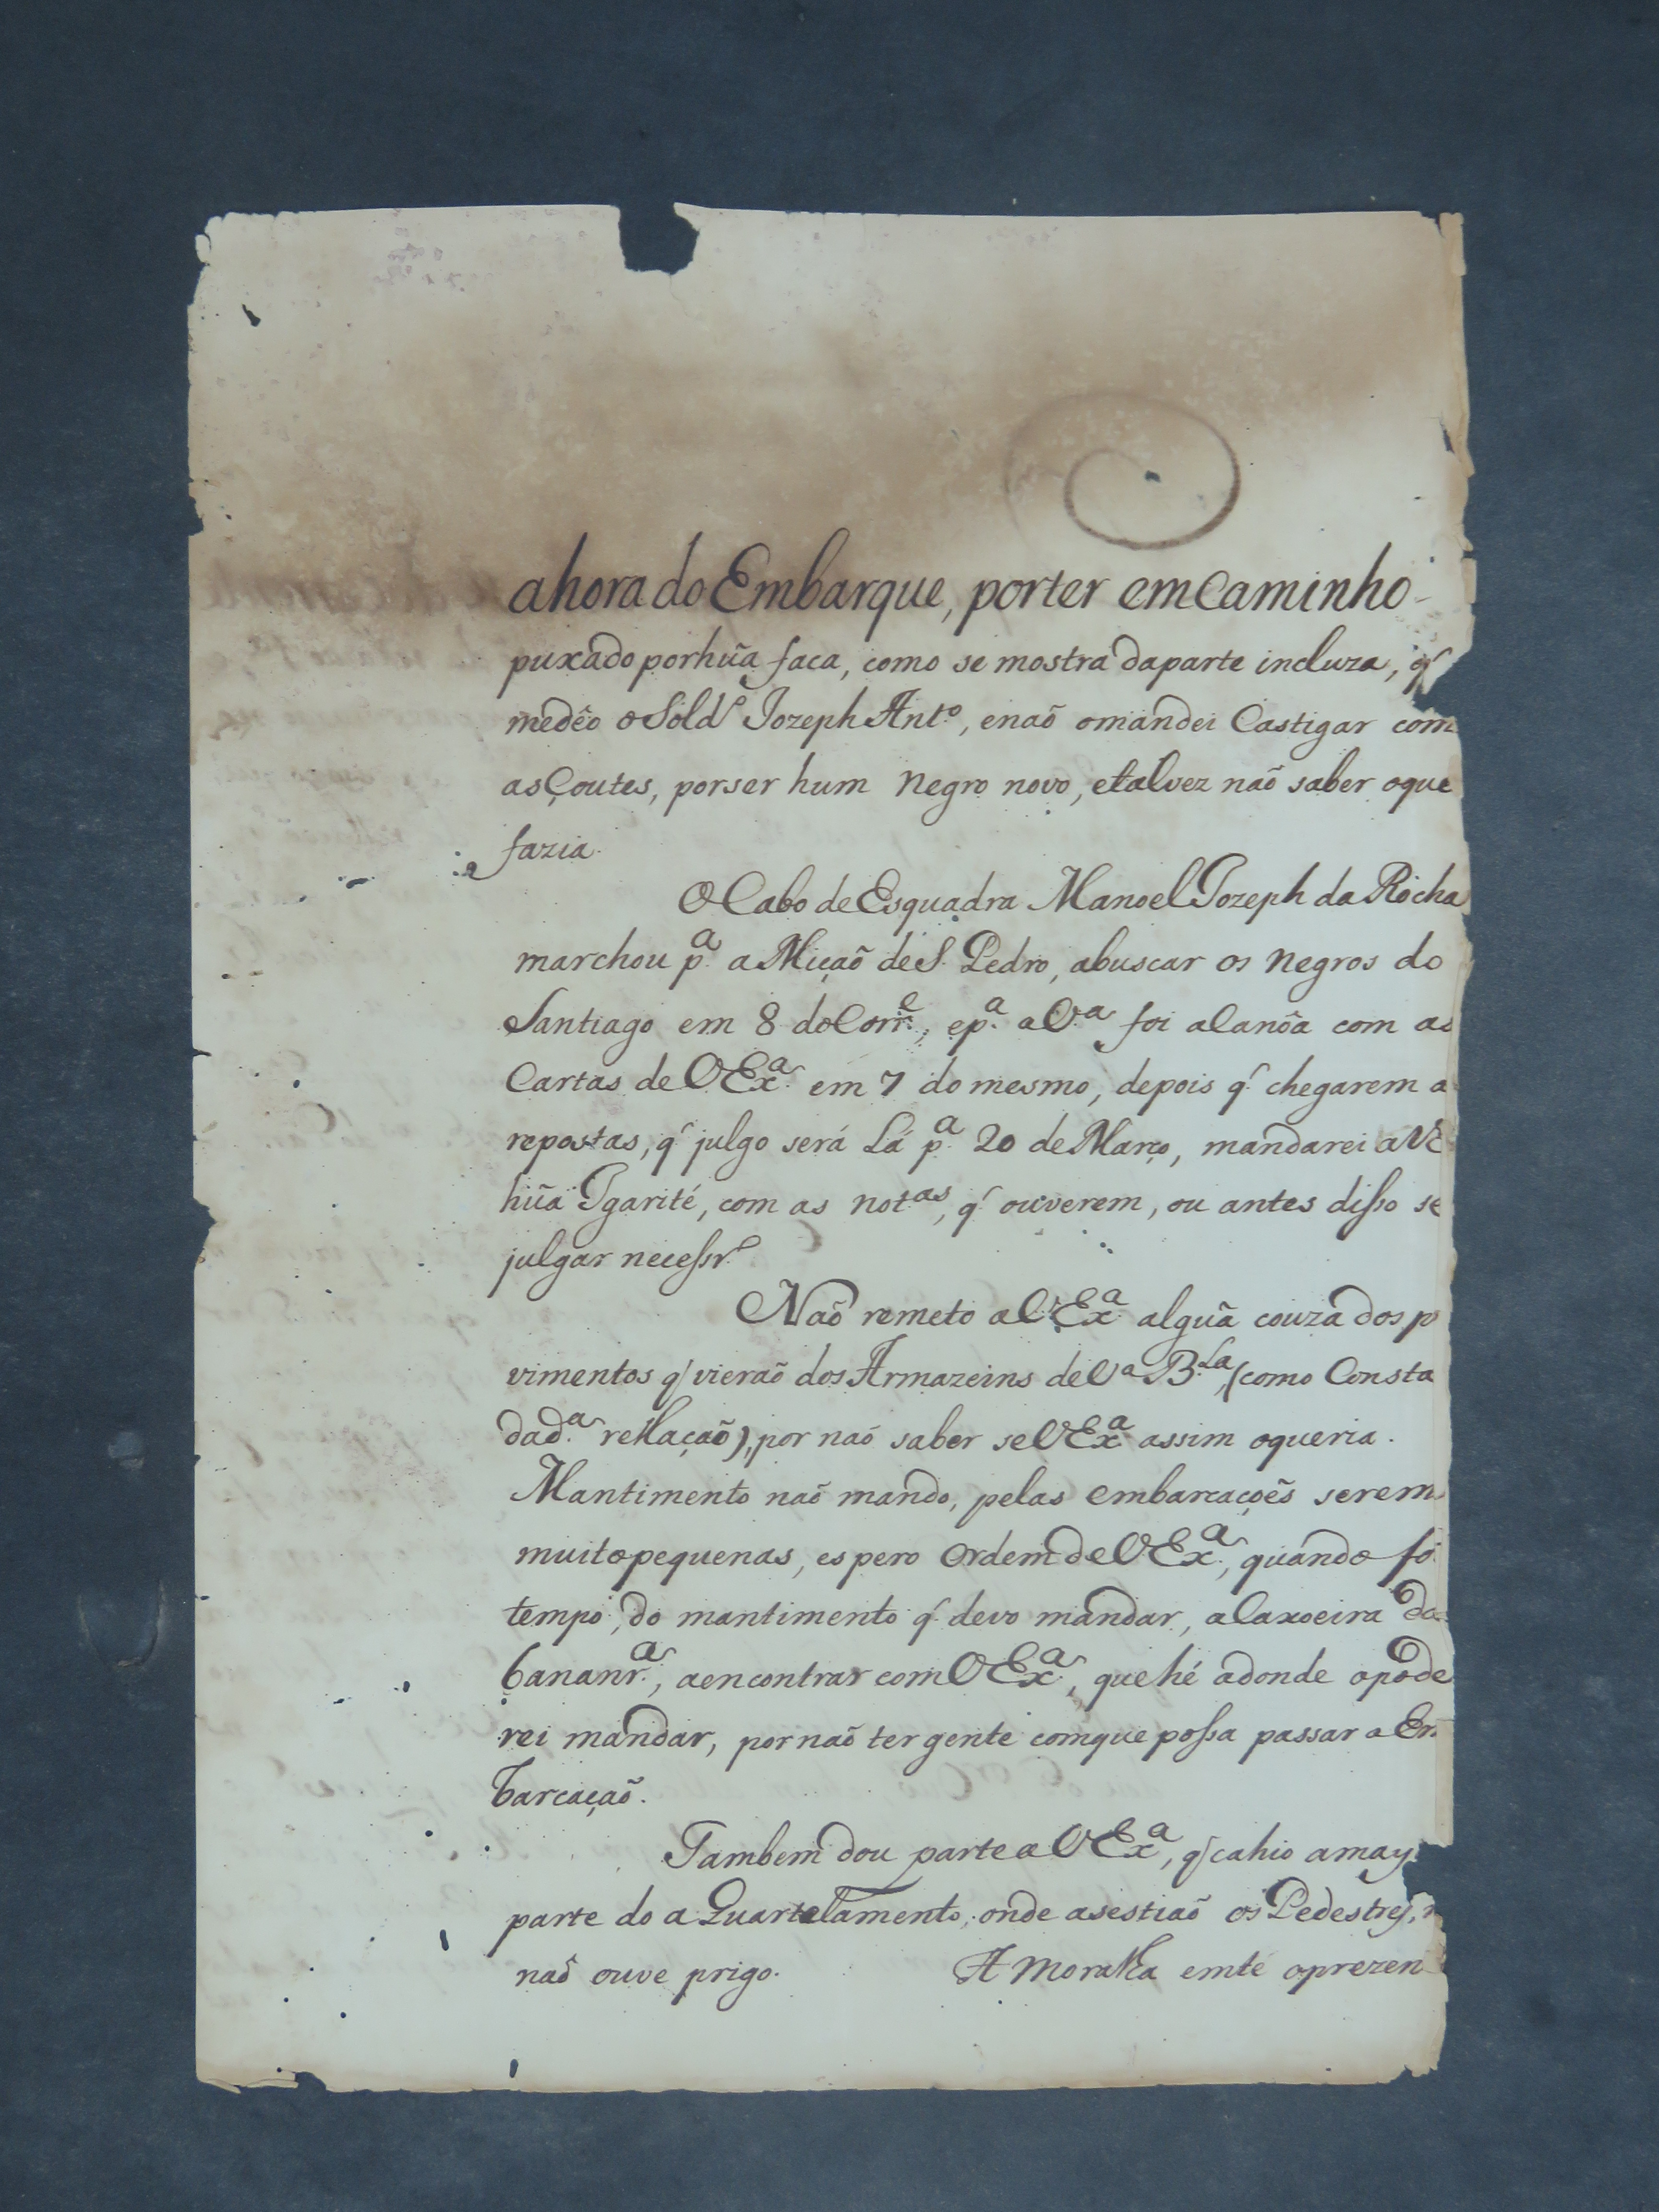 ahora do Embarque, porter em Caminho
puxado porhuã faca, como se mostra daparte incluza, q̃
medêo o Sold.º Jozeph Ant.º, enaõ omandei Castigar com
asçoutes, porser hum negro novo, etalvez naõ saber oque
fazia.
O Cabo de Esquadra Manoel Jozeph da Rocha
marchou p.ª a Miçaõ de S. Pedro, abuscar os negros do
Santiago em 8 do Corr.e, ep.ª a V.ª foi a Canôa com as
Cartas de V Ex.ª em 7 do mesmo, depois q̃ chegarem a
repostas, q̃ julgo será Lá p.ª 20 de Março, mandarei a V E
huã Ygarité, com as notas, q̃ ouverem, ou antes disso se
julgar necessr.º
Naõ remeto a V Ex.ª alguã couza dos p
vimentos q̃ vieraõ dos Armazeins de V.ª B.La, (como Consta
dad.ª rellaçaõ), por naõ saber se V Ex.ª assim oqueria.
Mantimento naõ mando, pelas embarcaçoẽs serem
muito pequenas, espero Ordem de V Ex.ª, quando fo
tempo, do mantimento q̃ devo mandar, a Caxoeira da
bananr.ª, aencontrar com V Ex.ª, que hé adonde opode
rei mandar, por naõ ter gente comque possa passar a Em
barcaçaõ.
Tambem dou parte a V Ex.ª, q̃ cahio a may
parte do aQuartelamento, onde asestiaõ os Pedestres,
naõ ouve prigo. A Moralha emté oprezen